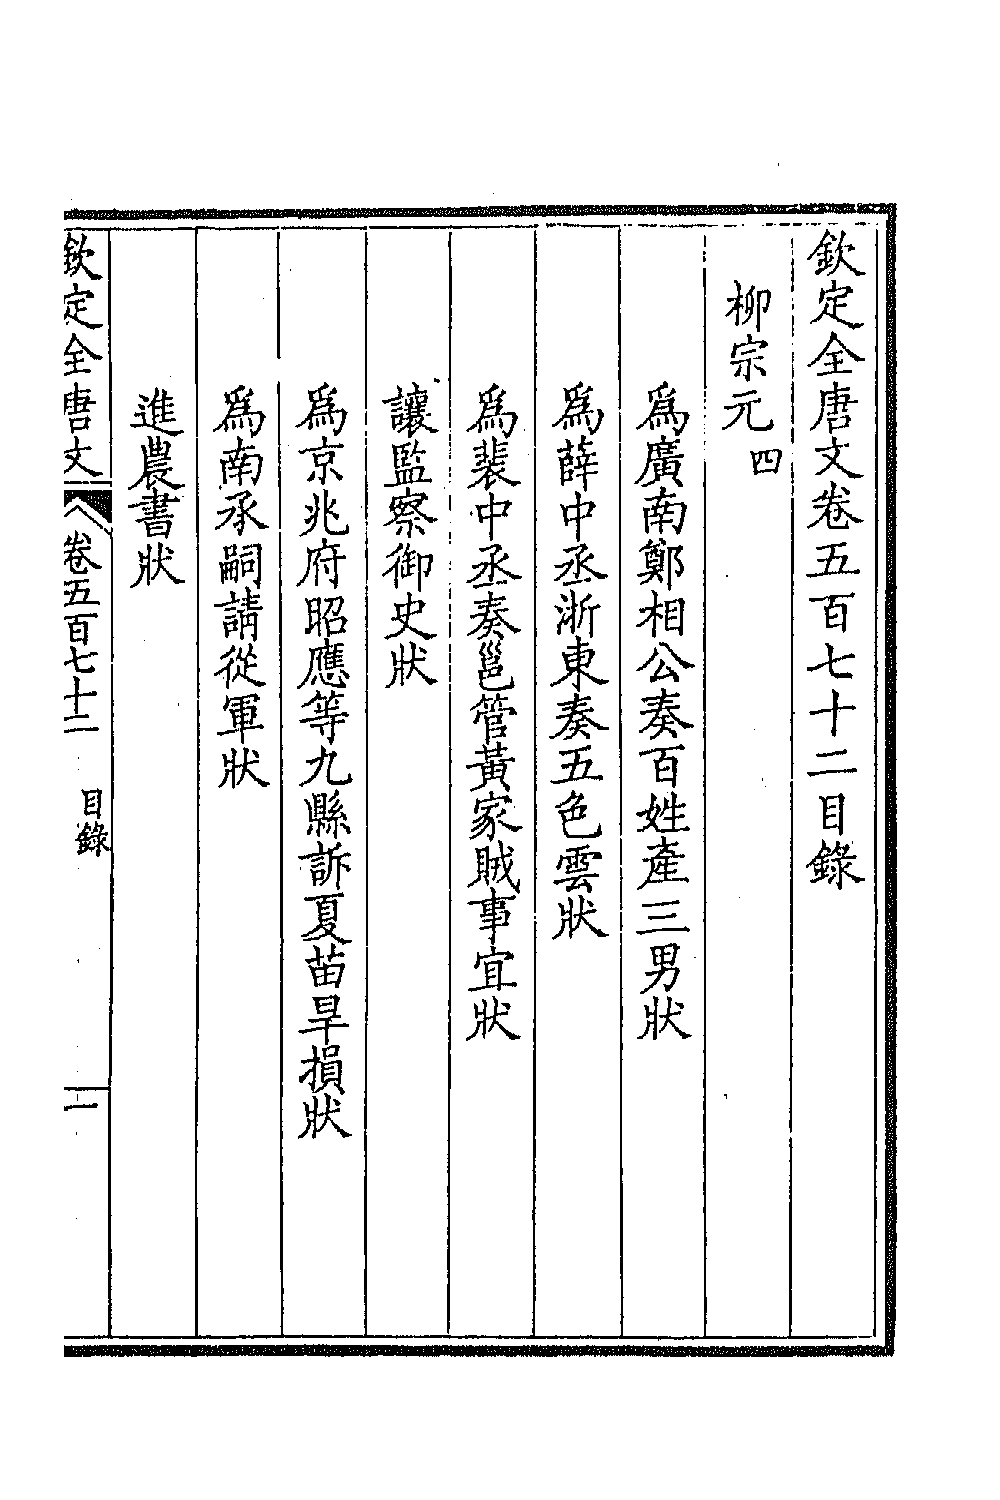 欽定全唐文卷五百七十二目錄
柳宗元四
爲廣南鄭相公奏百姓產三男狀
爲薛中丞浙東奏五色雲狀
爲裴中丞奏邕管黃家賊事宜狀
讓監察御史狀
爲京兆府昭應等九縣訴夏苗旱損狀
爲南承嗣請從軍狀
進農書狀
欽定全唐文 卷五百七十二 目錄 一